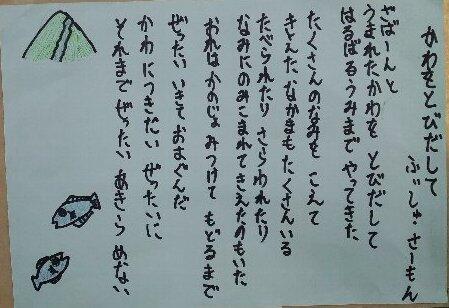 かわをとびだして
ふぃしゅ・さーもん
ざばーんと
うまれたかわを とびだして
はるばるうみまで やってきた
たくさんのなみを こえて
きえた なかまも たくさんいる
たべられたり さらわれたり
なみにのみこまれてきえたのもいた
おれはかのじょ みつけて もどるまで
ぜったい いきて おまぐんだ
かわ につきだい ぜったいに
それまで ぜったい あきら めない